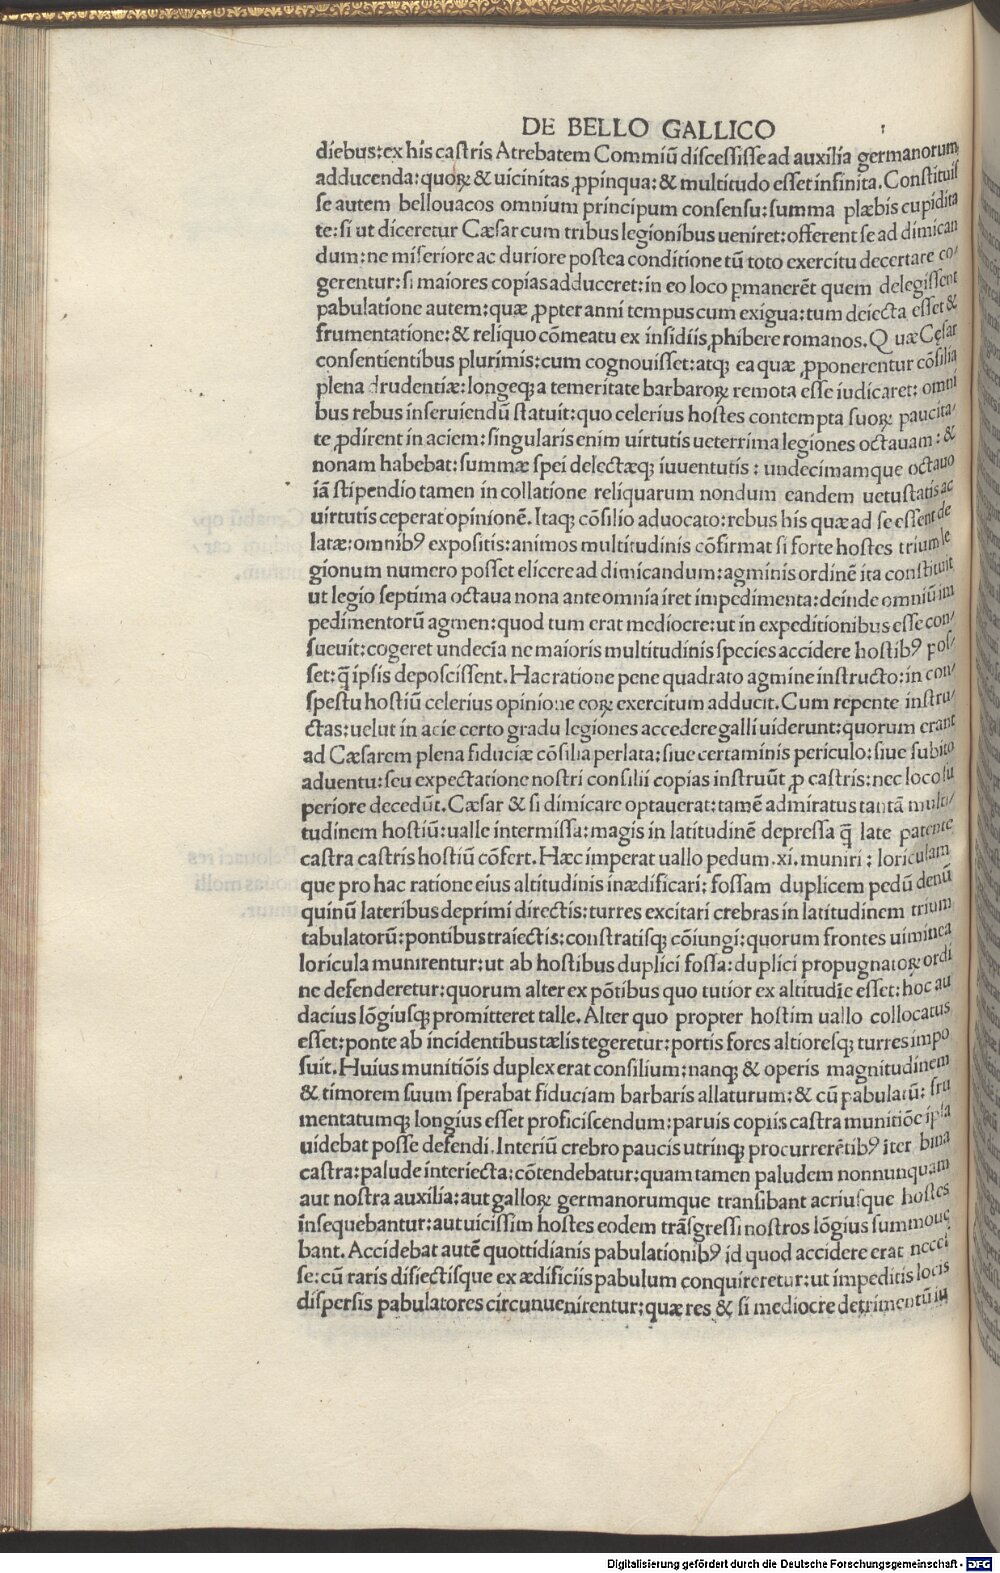 DE BELLO GALLICO
diebus:ex his castris Atrebatem Commiū discessisse ad auxilia germanorum
adducenda:quoꝝ & uicinitas ꝓpinqua: & multitudo esset infinita. Constituis
se autem bellouacos omnium principum consensu:summa plæbis cupidita
te:si ut diceretur Cæsar cum tribus legionibus ueniret:offerent se ad dimican
dum:ne miseriore ac duriore postea conditione tū toto exercitu decertare co-
gerentur:si maiores copias adduceret:in eo loco ꝑmanerēt quem delegissent
pabulatione autem:quæ ꝓpter anni tempus cum exigua:tum deiecta esset &
frumentatione:& reliquo cōmeatu ex insidiis ꝓhibere romanos. Quæ Cęsar
consentientibus plurimis:cum cognouisset:atqꝫ ea quæ ꝓponerentur cōsilia
plena prudentiæ:longeqꝫ a temeritate barbaroꝝ remota esse iudicaret: omni
bus rebus inseruiendū statuit:quo celerius hostes contempta suoꝝ paucita-
te ꝓdirent in aciem:singularis enim uirtutis ueterrima legiones octauam: &
nonam habebat:summæ spei delectæqꝫ iuuentutis: undecimamque octauo
iā stipendio tamen in collatione reliquarum nondum eandem uetustatis ac
uirtutis ceperat opinionē. Itaqꝫ cōsilio aduocato:rebus his quæ ad se essent de
latæ:omnibꝰ expositis:animos multitudinis cōfirmat si forte hostes trium le
gionum numero posset elicere ad dimicandum:agminis ordinē ita constituit
ut legio septima octaua nona ante omnia iret impedimenta:deinde omniū im
pedimentorū agmen:quod tum erat mediocre:ut in expeditionibus esse con-
sueuit:cogeret undecīa ne maioris multitudinis species accidere hostibꝰ pos-
set:q̄ ipsis deposcissent. Hac ratione pene quadrato agmine instructo:in con-
spestu hostiū celerius opinione eoꝝ exercitum adducit. Cum repente instru-
ctas:uelut in acie certo gradu legiones accedere galli uiderunt:quorum erant
ad Cæsarem plena fiduciæ cōsilia perlata:siue certaminis periculo:siue subito
aduentu:seu expectatione nostri consilii copias instruūt ꝓ castris:nec loco su
periore decedūt. Cæsar & si dimicare optauerat:tamē admiratus tantā multi-
tudinem hostiū:ualle intermissa:magis in latitudinē depressa q̄ late patente
castra castris hostiū cōfert. Hæc imperat uallo pedum.xi.muniri: loriculam
que pro hac ratione eius altitudinis inædificari: fossam duplicem pedū denū
quinū lateribus deprimi directis:turres excitari crebras in latitudinem trium
tabulatorū:pontibus traiectis:constratisqꝫ cōiungi:quorum frontes uiminea
loricula munirentur:ut ab hostibus duplici fossa:duplici propugnatoꝝ ordi
ne defenderetur:quorum alter ex pōtibus quo tutior ex altitudie esset:hoc au
dacius lōgiusqꝫ promitteret talle. Alter quo propter hostim uallo collocatus
esset:ponte ab incidentibus tælis tegeretur:portis fores altioresqꝫ turres impo
suit. Huius munitiōis duplex erat consilium:nanqꝫ & operis magnitudinem
& timorem suum sperabat fiduciam barbaris allaturum:& cū pabulatū: fru
mentatumqꝫ longius esset proficiscendum:paruis copiis castra munitiōe ipsa
uidebat posse defendi. Interiū crebro paucis utrinqꝫ procurrerētibꝰ iter bina
castra:palude interiecta:cōtendebatur:quam tamen paludem nonnunquam
aut nostra auxilia:aut galloꝝ germanorumque transibant acriusque hostes
insequebantur:aut uicissim hostes eodem trāsgressi nostros lōgius summoue
bant. Accidebat autē quottidianis pabulationibꝰ id quod accidere erat necei
se:cū raris disiectisque ex ædificiis pabulum conquireretur:ut impeditis locis
dispersis pabulatores circunuenirentur:quæ res & si mediocre detrimentū iu
Digitalisierung gefördert durch die Deutsche Forschungsgemeinschaft - DFG